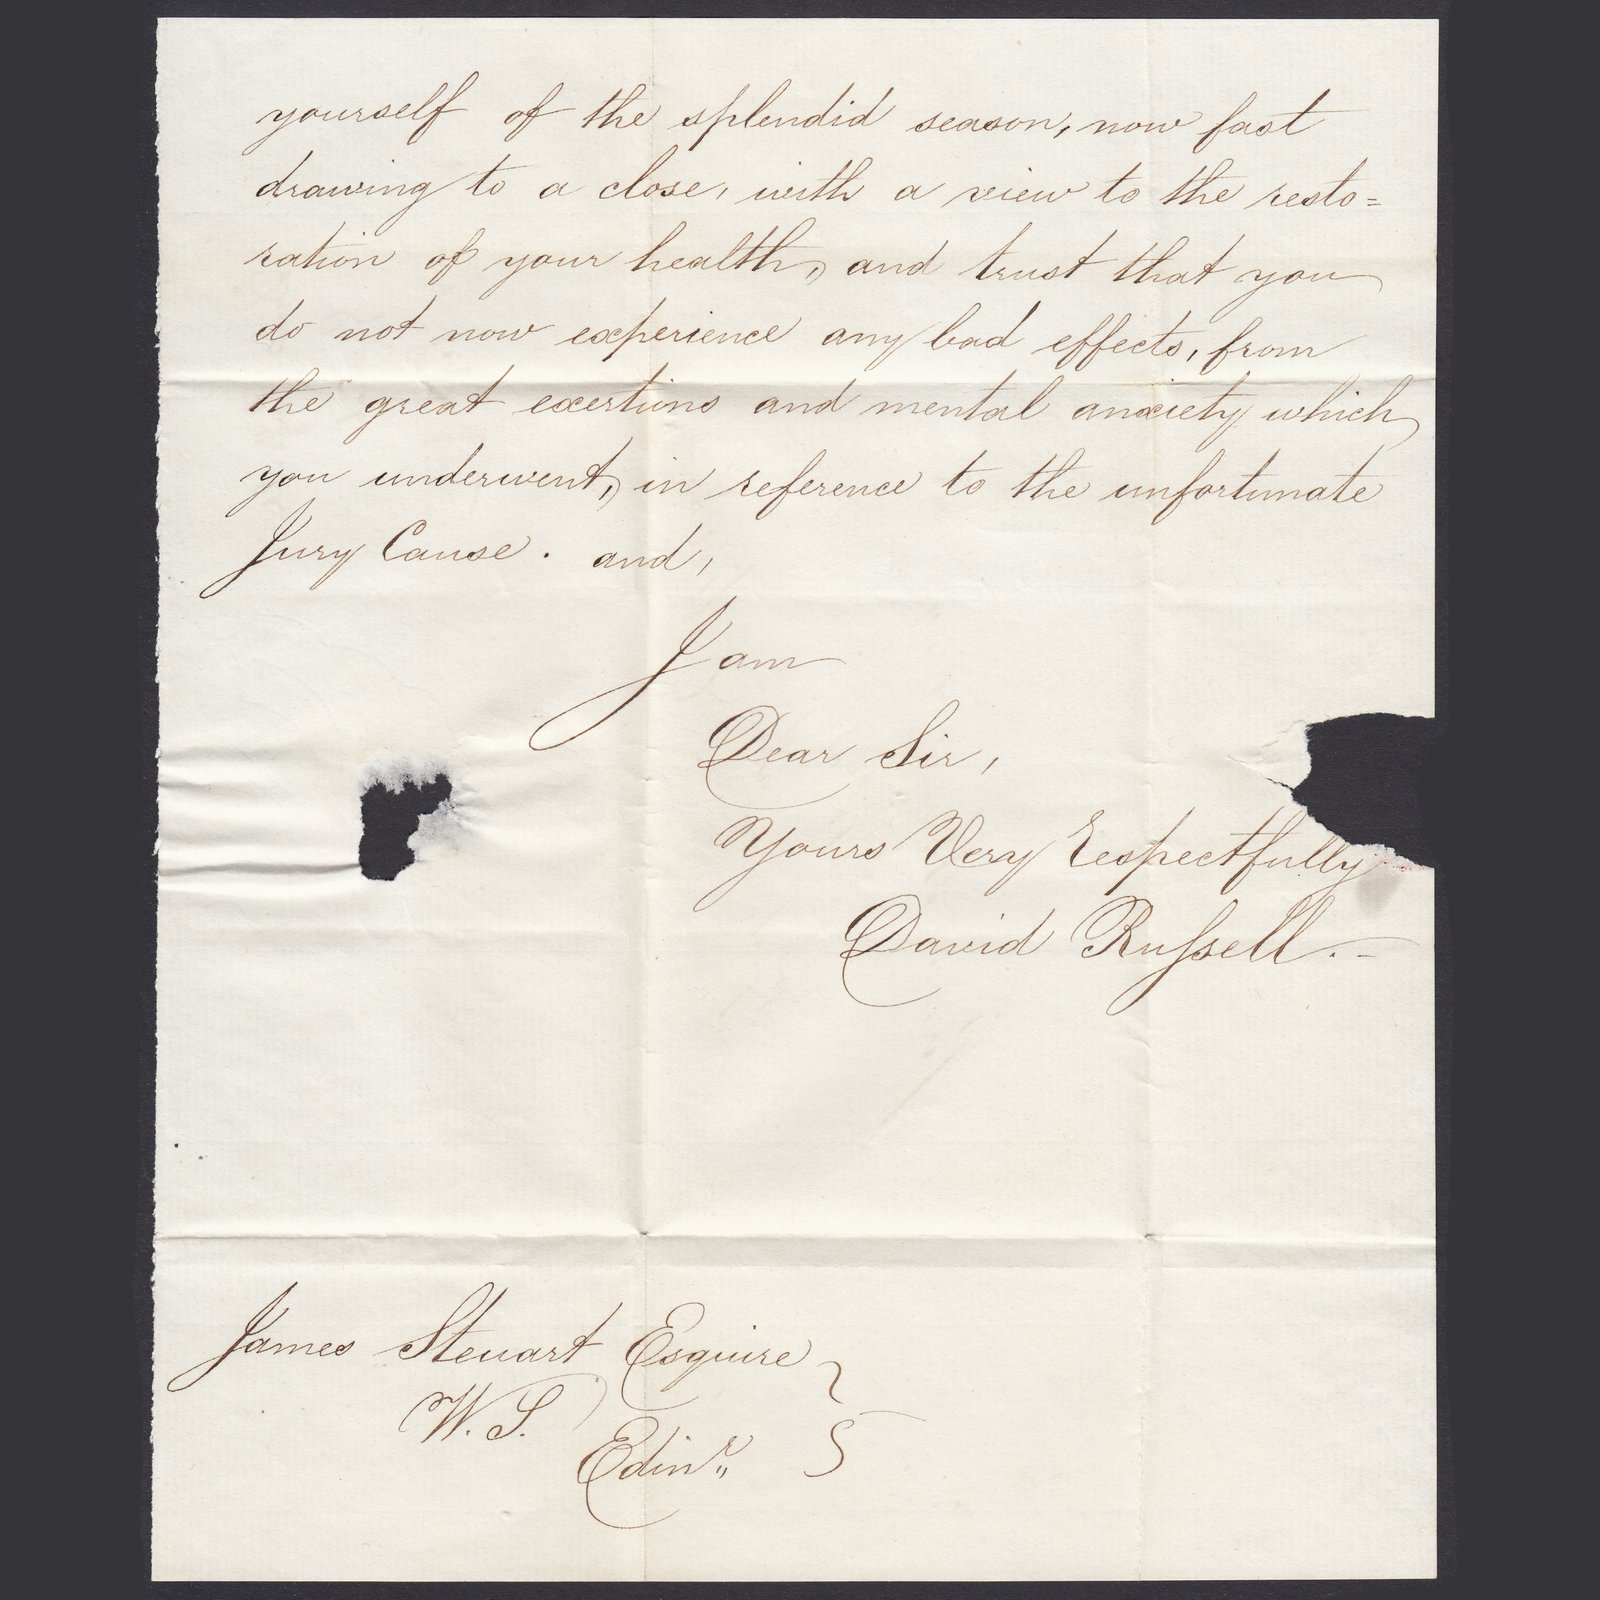 yourself of the splendid season, now fast
drawing to a close, with a view to the resto=
ration of your health, and trust that you
do not now experience any bad effects, from
the great exertions and mental anxiety which
you underwent, in reference to the unfortunate
Jury Cause. and,
I am
Dear Sir,
Yours Very Respectfully
David Rufsell.-
James Steuart Esquire
W.S.
Edinr.